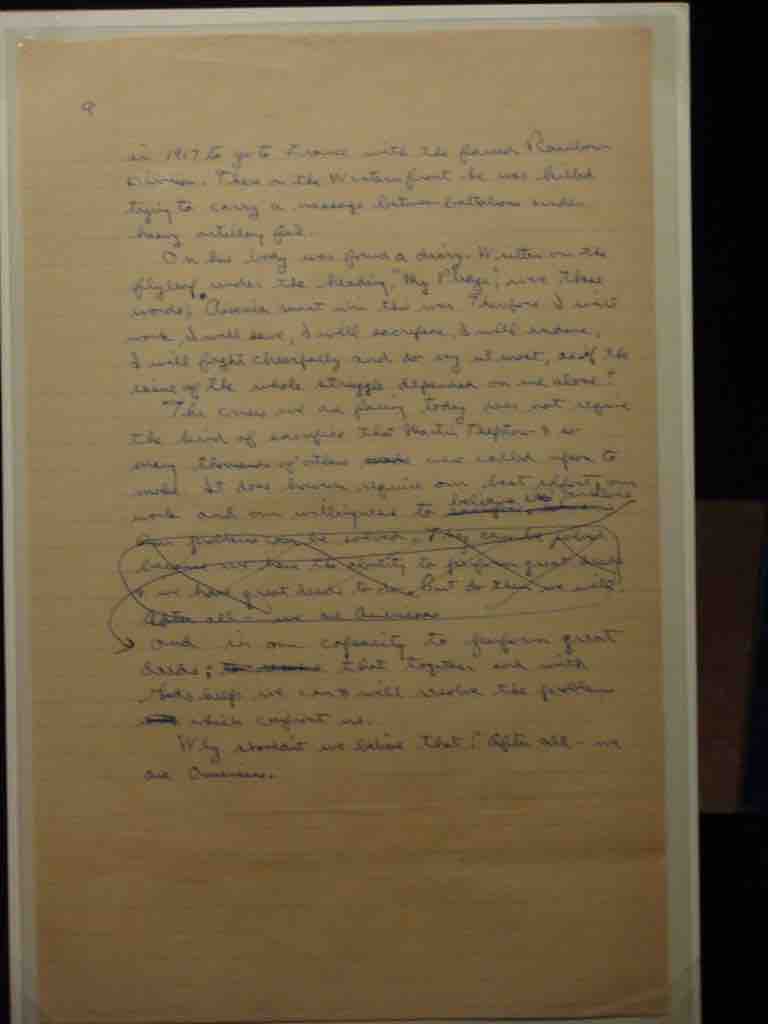 9
in 1917 to go to France with the famed Rainbow
Division. There on the Western front he was killed
trying to carry a message between battalions under
heavy artillery fire.
On his body was found a diary. Written on the
flyleaf under the heading, "My Pledge", were these
words; America must win this war. Therefore I will
work, I will save, I will sacrifice, I will endure,
I will fight cheerfully and do my utmost, as if the
issue of the whole struggle depended on me alone."
The crisis we are facing today does not require
the kind of sacrifice that Martin Treptow & so
many thousands of others were called upon to
make. It does however require our best effort, our
work and our willingness to believe in ourselves
Our problems can be solved. They can be solved
because we have the ability to perform great deeds
& we have great deeds to do. But do them we will.
After all - we are Americans
and in our capacity to perform great
deeds; that together and with
Gods help we can & will resolve the problems
which confront us.
Why shouldn't we believe that? After all - we
are Americans.